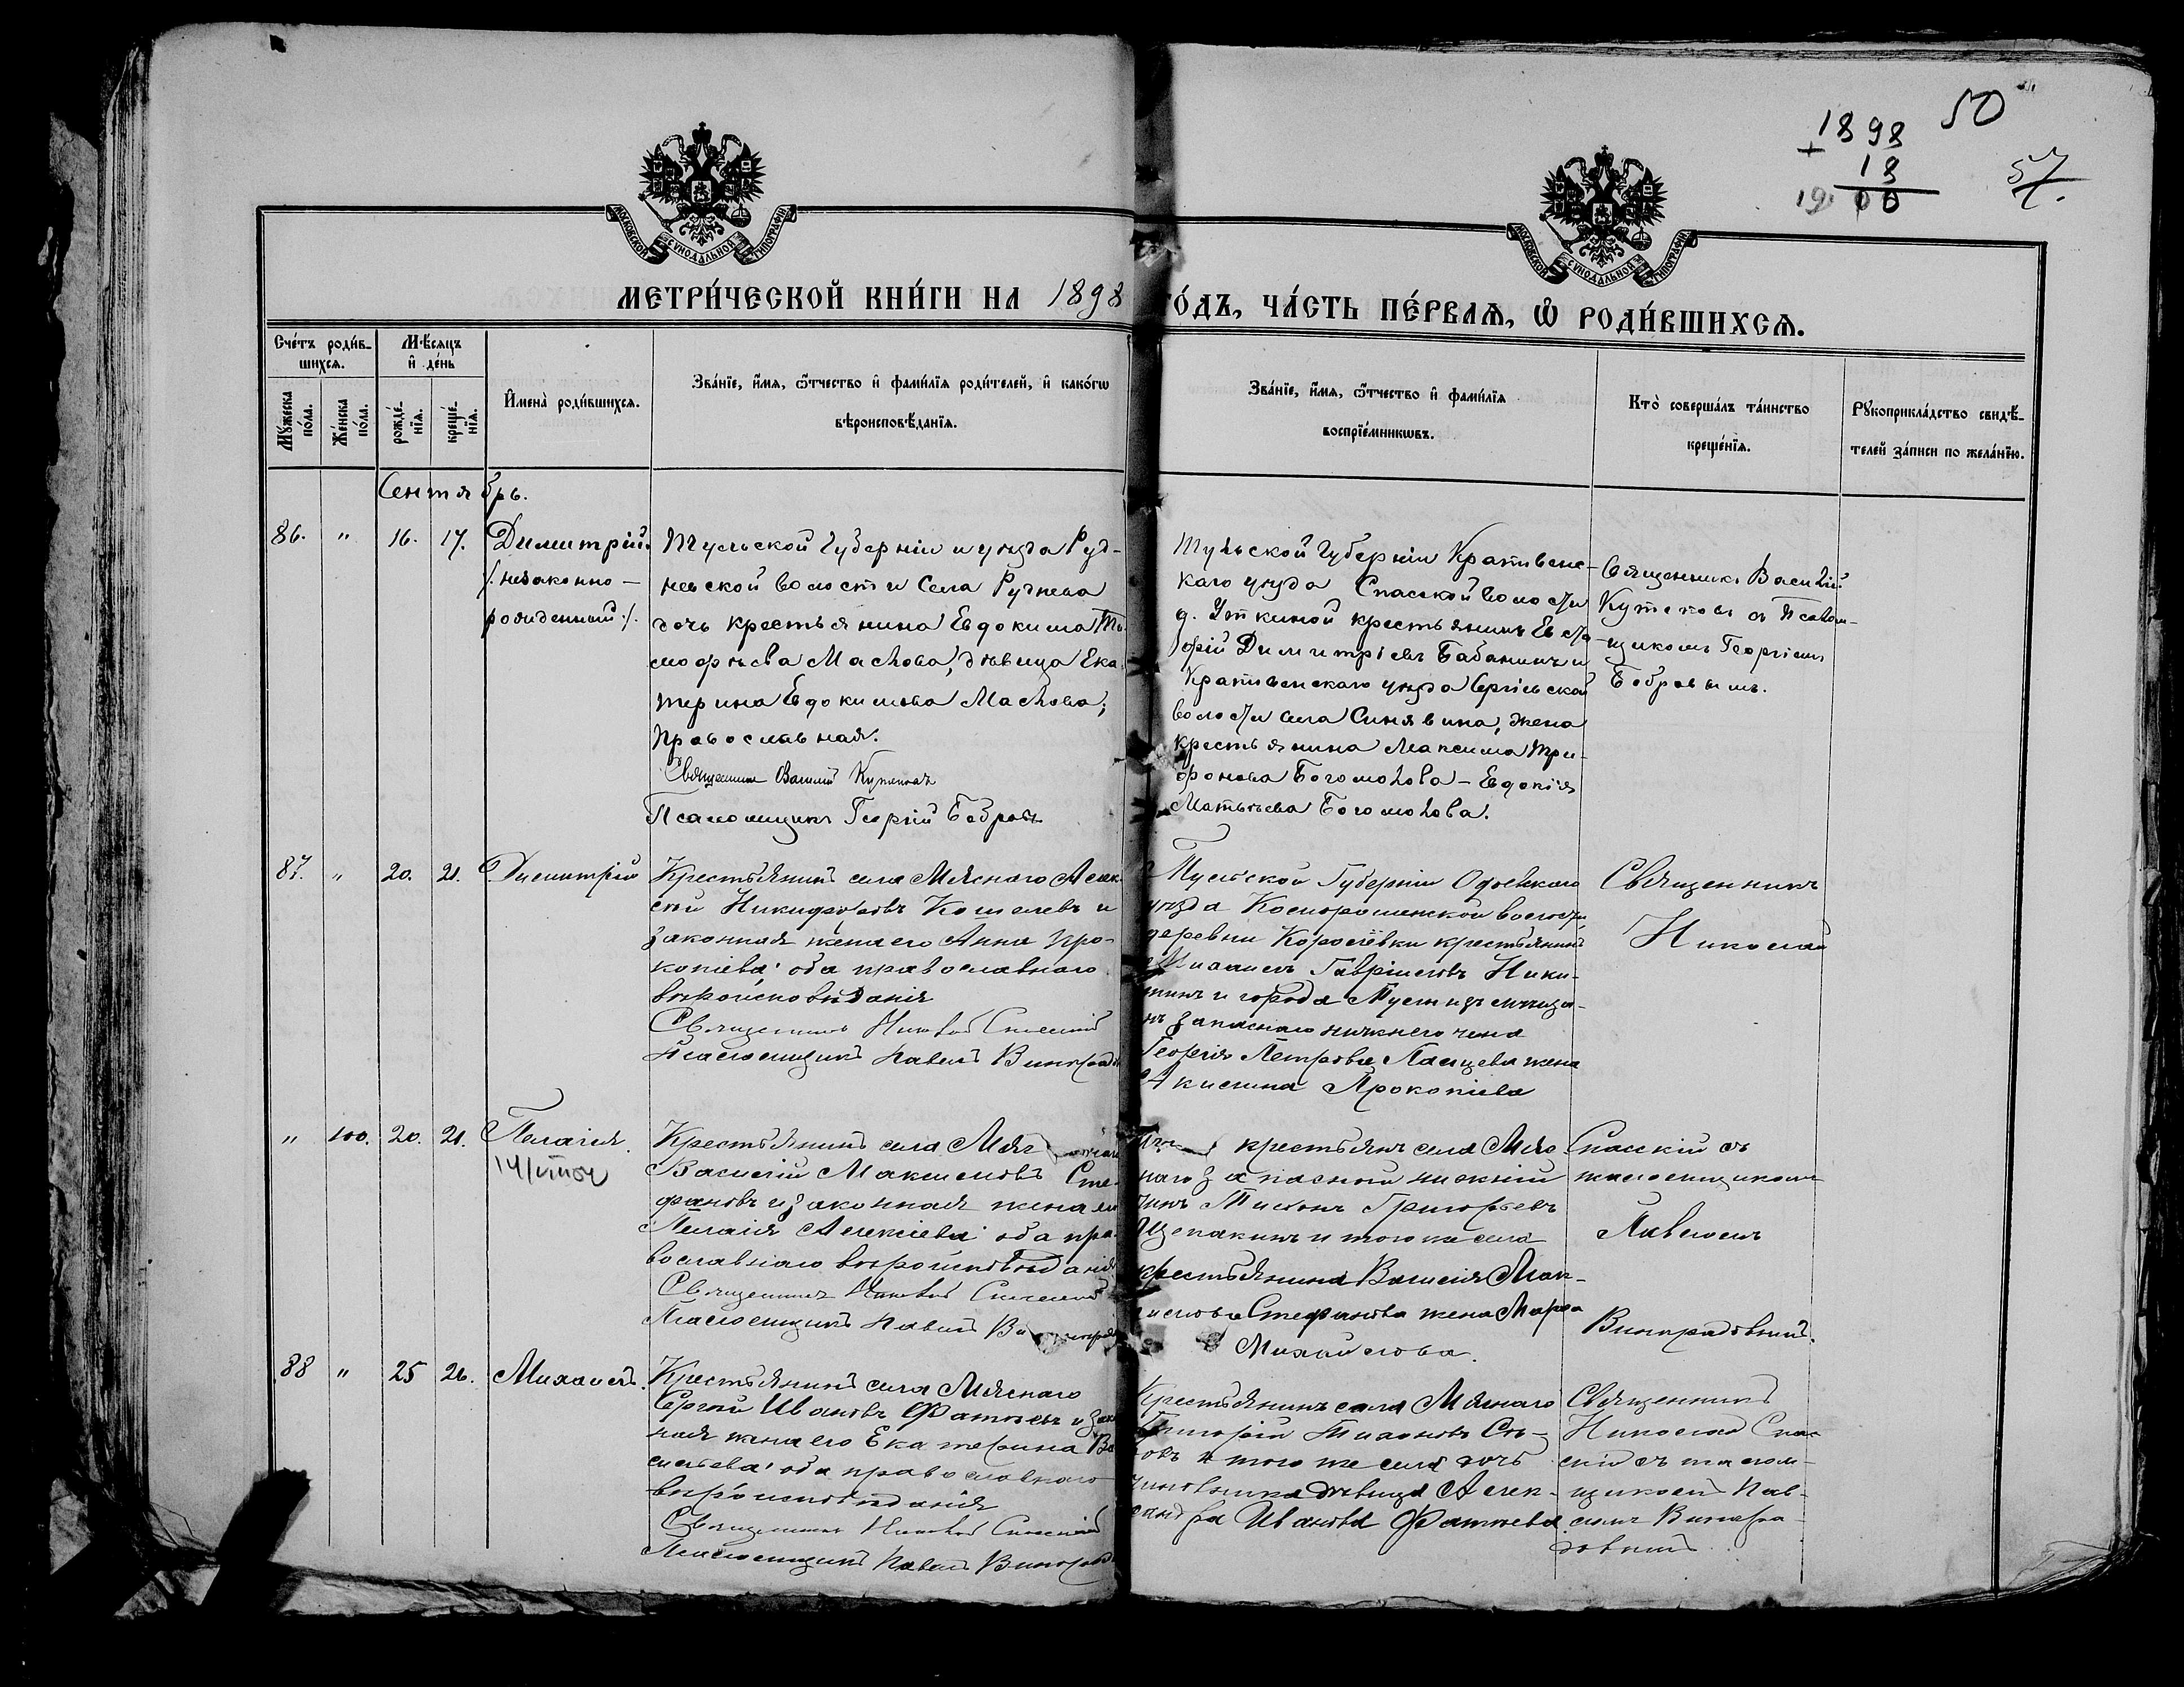 1898
+
18
1900
50
57
МОСКОВСКОЙ СѴНОДАЛЬНОЙ ТИПОГРАФІИ
МОСКОВСКОЙ СѴНОДАЛЬНОЙ ТИПОГРАФІИ
МЕТРИ́ЧЕСКОЙ КНИ́ГИ НА 1898 ГО́ДЪ, ЧА́СТЬ ПЕ́РВАѦ, Ѡ РОДИ́ВШИХСѦ.
Сче́тъ роди́в-
шихсѧ.
Мѣ́сѧцъ
и де́нь
Мꙋ́жеска по́ла.
Же́нска по́ла.
рожде́-
нїѧ.
креще́-
нїѧ.
Имена̀ роди́вшихсѧ.
Зва́нїе, и́мѧ, ѻ҆́тчество и фами́лїѧ роди́телей, и како́гѡ
вѣроисповѣ́данїѧ.
Зва́нїе, и́мѧ, ѻ҆́тчество и фами́лїѧ
воспрїе́мникѡвъ.
Кто̀ соверша́лъ та́инство
креще́нїѧ.
Рꙋкоприкла́дство свидѣ́-
телей за́писи по жела́нїю.
Сентябрь.
86. " 16. 17. Димитрій
/:незаконно-
рожденный:/.
Тульской Губерніи и уѣзда Руд-
невской волости Села Руднева
дочь крестьянина Евдокима Ти-
моѳѣева Маслова, дѣвица Ека-
терина Евдокимова Маслова;
православная.
Священникъ Василій Кутеповъ
Псаломщикъ Георгій Бобровъ
Тульской Губерніи Крапивенс-
каго уѣзда Спасской волости
д. Уткиной крестьянинъ Евста-
фій Димитріевъ Бабанинъ и
Крапивенскаго уѣзда Сергіевской
волости села Синявина, жена
крестьянина Максима Три-
фонова Богомолова - Евдокія
Матвѣева Богомолова.
Священникъ Василій
Кутеповъ съ Псалом-
щикомъ Георгіемъ
Бобровымъ.
87. " 20. 21. Димитрій
Крестьянинъ села Мяснаго Алек-
сѣй Никифоровъ Кошелевъ и
законная жена его Анна Про-
копіева; оба православнаго
вѣроисповѣданія
Священникъ Николай Спасскій
Псаломщикъ Павелъ Виноград
Тульской Губерніи Одоевскаго
уѣзда волости
деревни Королёвки крестьянинъ
Михаилъ Гавріиловъ Ники-
тинъ и города Тулы изъ мѣща-
нъ запаснаго нижнего чина
Георгія Петрова жена
Акилина Прокопіева
Священникъ
Николай
" 100. 20. 21. Пелагія.
Крестьянинъ села Мяснаго
Василій Максимовъ Сте-
фановъ и законная жена его
Пелагія Алексіева; оба пра-
вославнаго вѣроисповѣданія
Священникъ Николай Спасскій
Псаломщикъ Павелъ Виноградов
крестьянъ села Мяс-
наго запасный нижній
чинъ Тихонъ Григорьевъ
Щепакинъ и того же села
крестьянина Василія Мак-
симова Стефанова жена Марѳа
Михайлова.
Спасскій съ
псаломщикомъ
Павломъ
Виноградовымъ.
88 " 25 26. Михаилъ.
Крестьянинъ села Мяснаго
Сергѣй Ивановъ Фатѣевъ и закон-
ная жена его Екатерина Ва-
сильева; оба православнаго
вѣроисповѣданія
Священникъ Николай Спасскій
Псаломщикъ Павелъ Виноград
Крестьянинъ села Мяснаго
Григорій Тихоновъ
и того же села дочь
чиновника дѣвица Алек-
сандра Иванова Фатѣева
Священникъ
Николай Спас-
скій съ псалом-
щикомъ Пав-
ломъ Виногра-
довымъ.